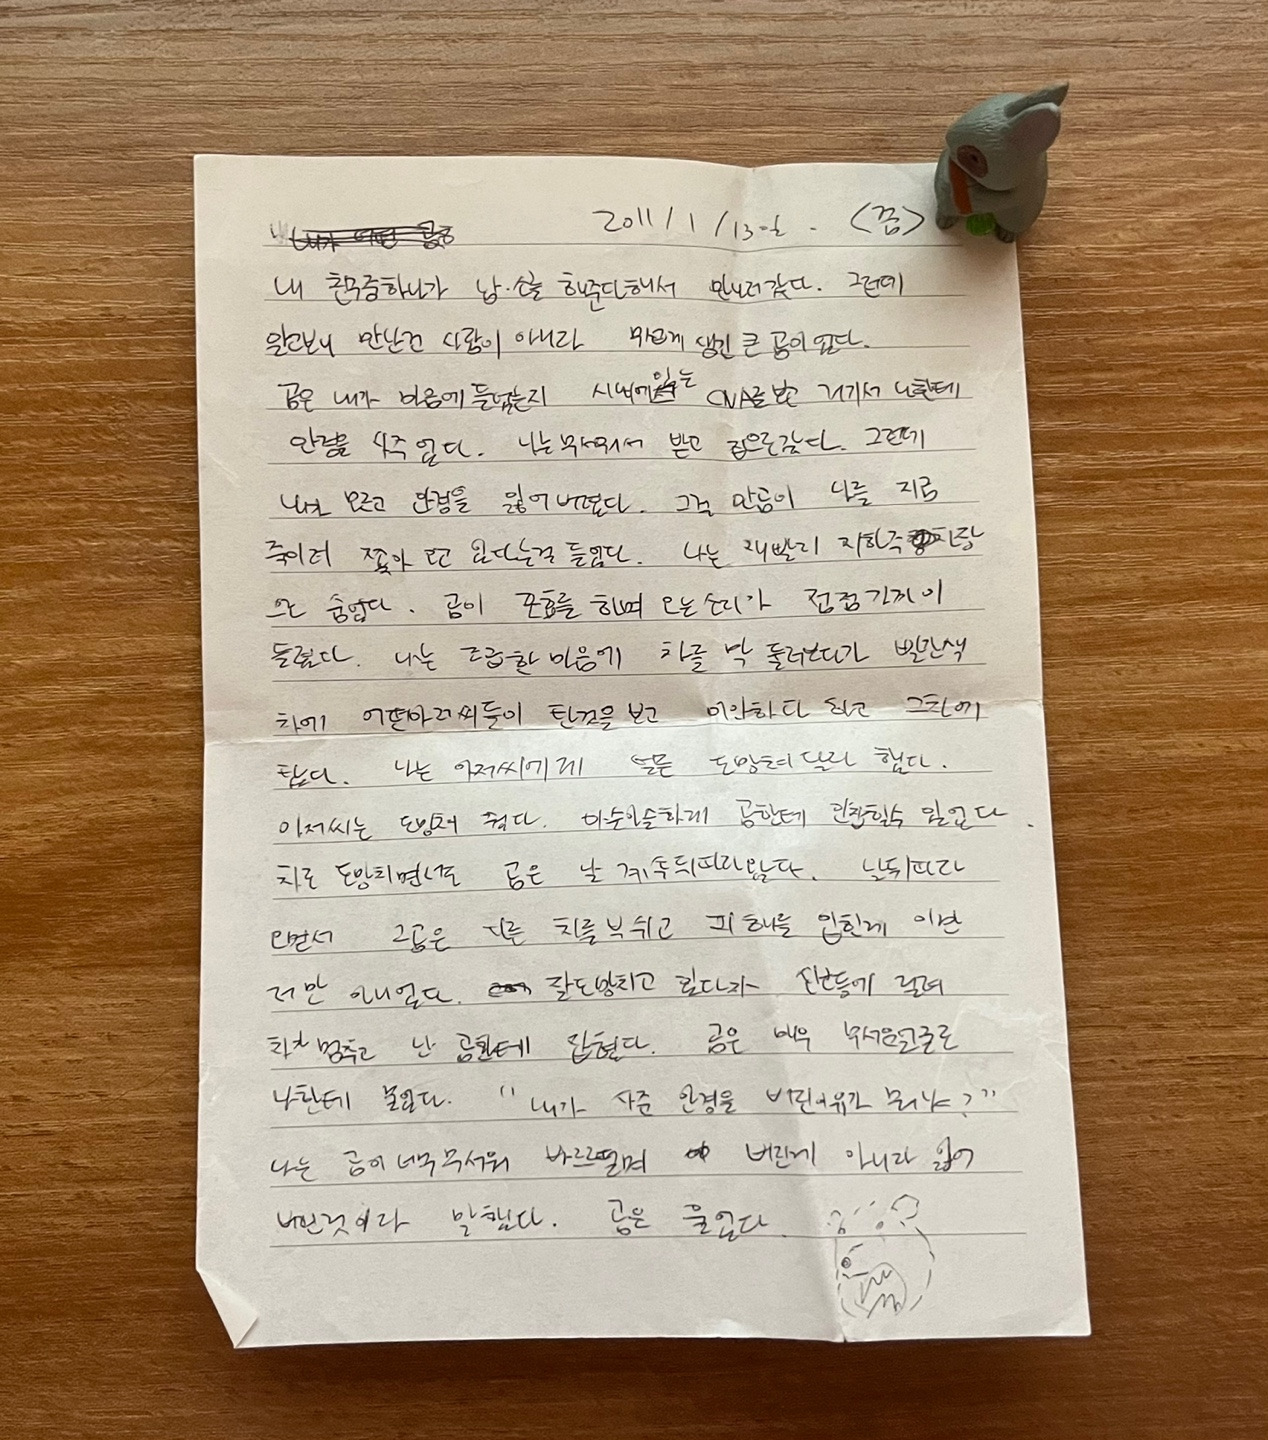 2011/1/13일. <꿈>
내 친구중하나가 남·소를 해준다해서 만나러갔다. 그런데
알고보니 만난건 사람이 아니라 무섭게 생긴 큰 곰이였다.
곰은 내가 마음에 들었는지 시내에있는 거기서 나한테
안경을 사주었다. 나는무서워서 받고 집으로갔다. 그런데
내가 모르고 안경을 잃어버렸다. 그걸 안곰이 나를 지금
죽이러 쫓아 오고 있다는걸 들었다. 나는 재빨리 지하주차장
으로 숨었다. 곰이 포효를 하며 오는소리가 점점가까이
들렸다. 나는 조급한 마음에 차를 막 둘러보다가 빨간색
차에 어떤아저씨들이 탄것을보고 미안하다 하고 그차에
탔다. 나는 아저씨에게 얼른 도망쳐달라 했다.
아저씨는 도망쳐 줬다. 아슬아슬하게 곰한테 안잡힐수 있었다.
차로 도망치면서도 곰은 날 계속뒤따라왔다. 날뒤따라
오면서 그곰은 다른 차를부쉬고 피해를 입힌게 이만
저만 아니었다. 잘도망치고 있다가 신호등에 걸려
차가멈추고 난 곰한테 잡혔다. 곰은 매우 무서운얼굴로
나한테 물었다. "내가 사준 안경을 버린이유가 뭐냐?"
나는 곰이너무무서워 바르르떨며 버린게 아니라 잃어
버린것이라 말했다. 곰은 울었다.